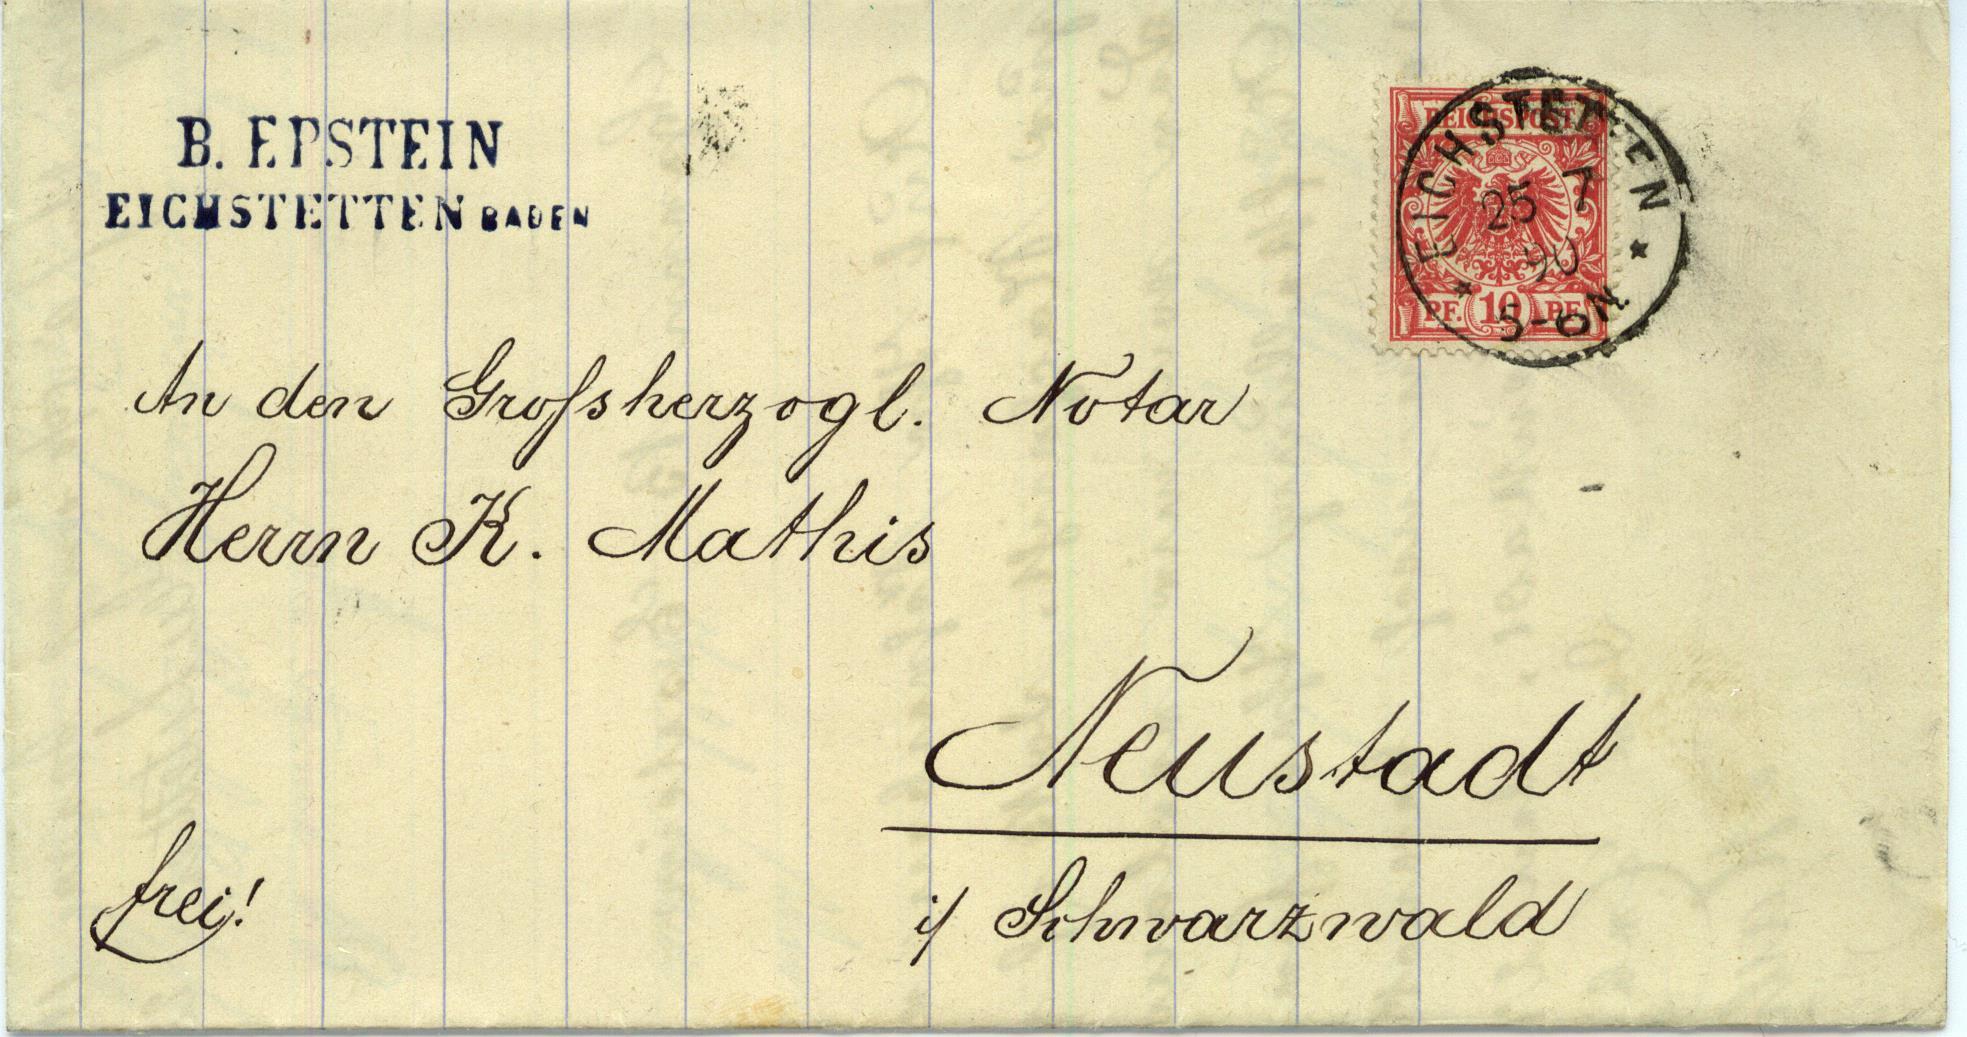 B. EPSTEIN
EICHSTETTEN BADEN
REICHSPOST
PF. 10 PF.
EICHSTETTEN
25 7
90
5-6N
An den Großherzogl. Notar
Herrn K. Mathis
Neustadt
i/ Schwarzwald
frei!